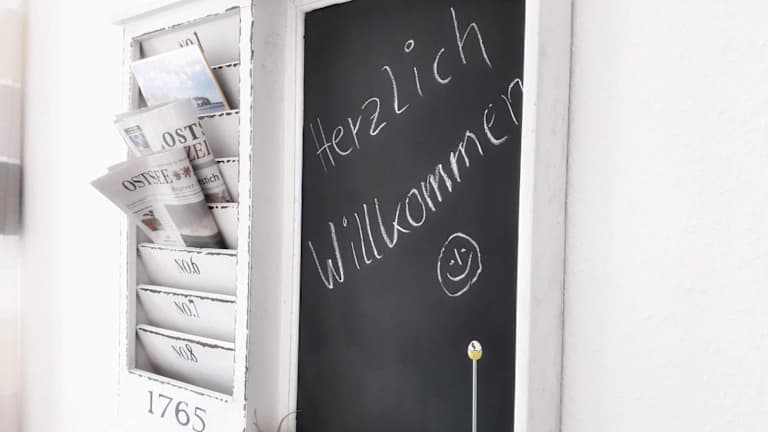 Herzlich
Willkommen
No.
OSTS
ZEI
OSTSEE
No.6
No.7
No.8
1765